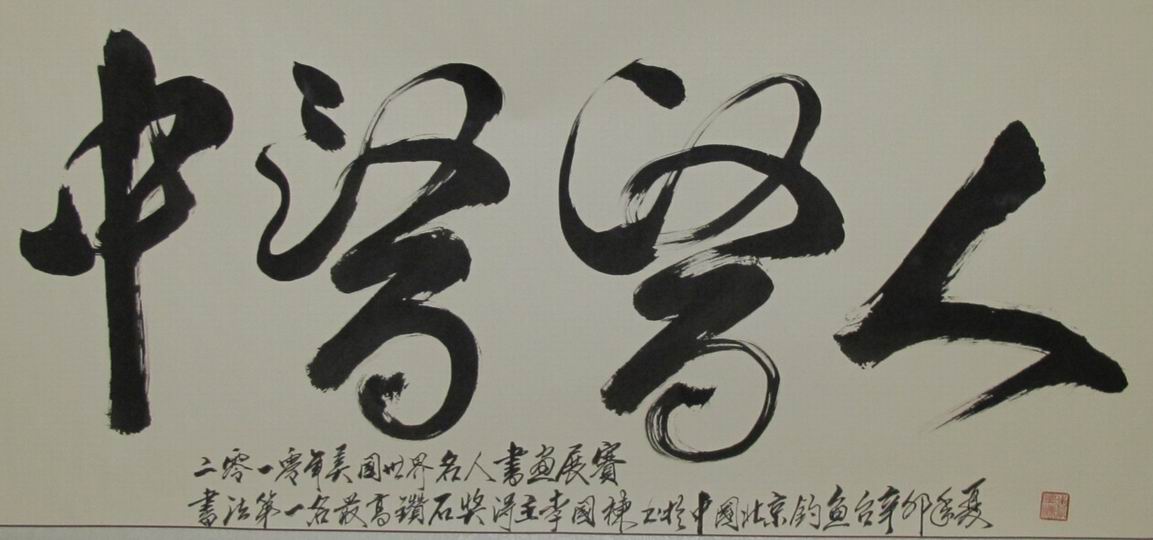 中醫醫人
二零一零年美国世界名人書画展賽
書法第一名最高鑽石奖得主李國棟书於中國北京钓魚台辛卯年夏